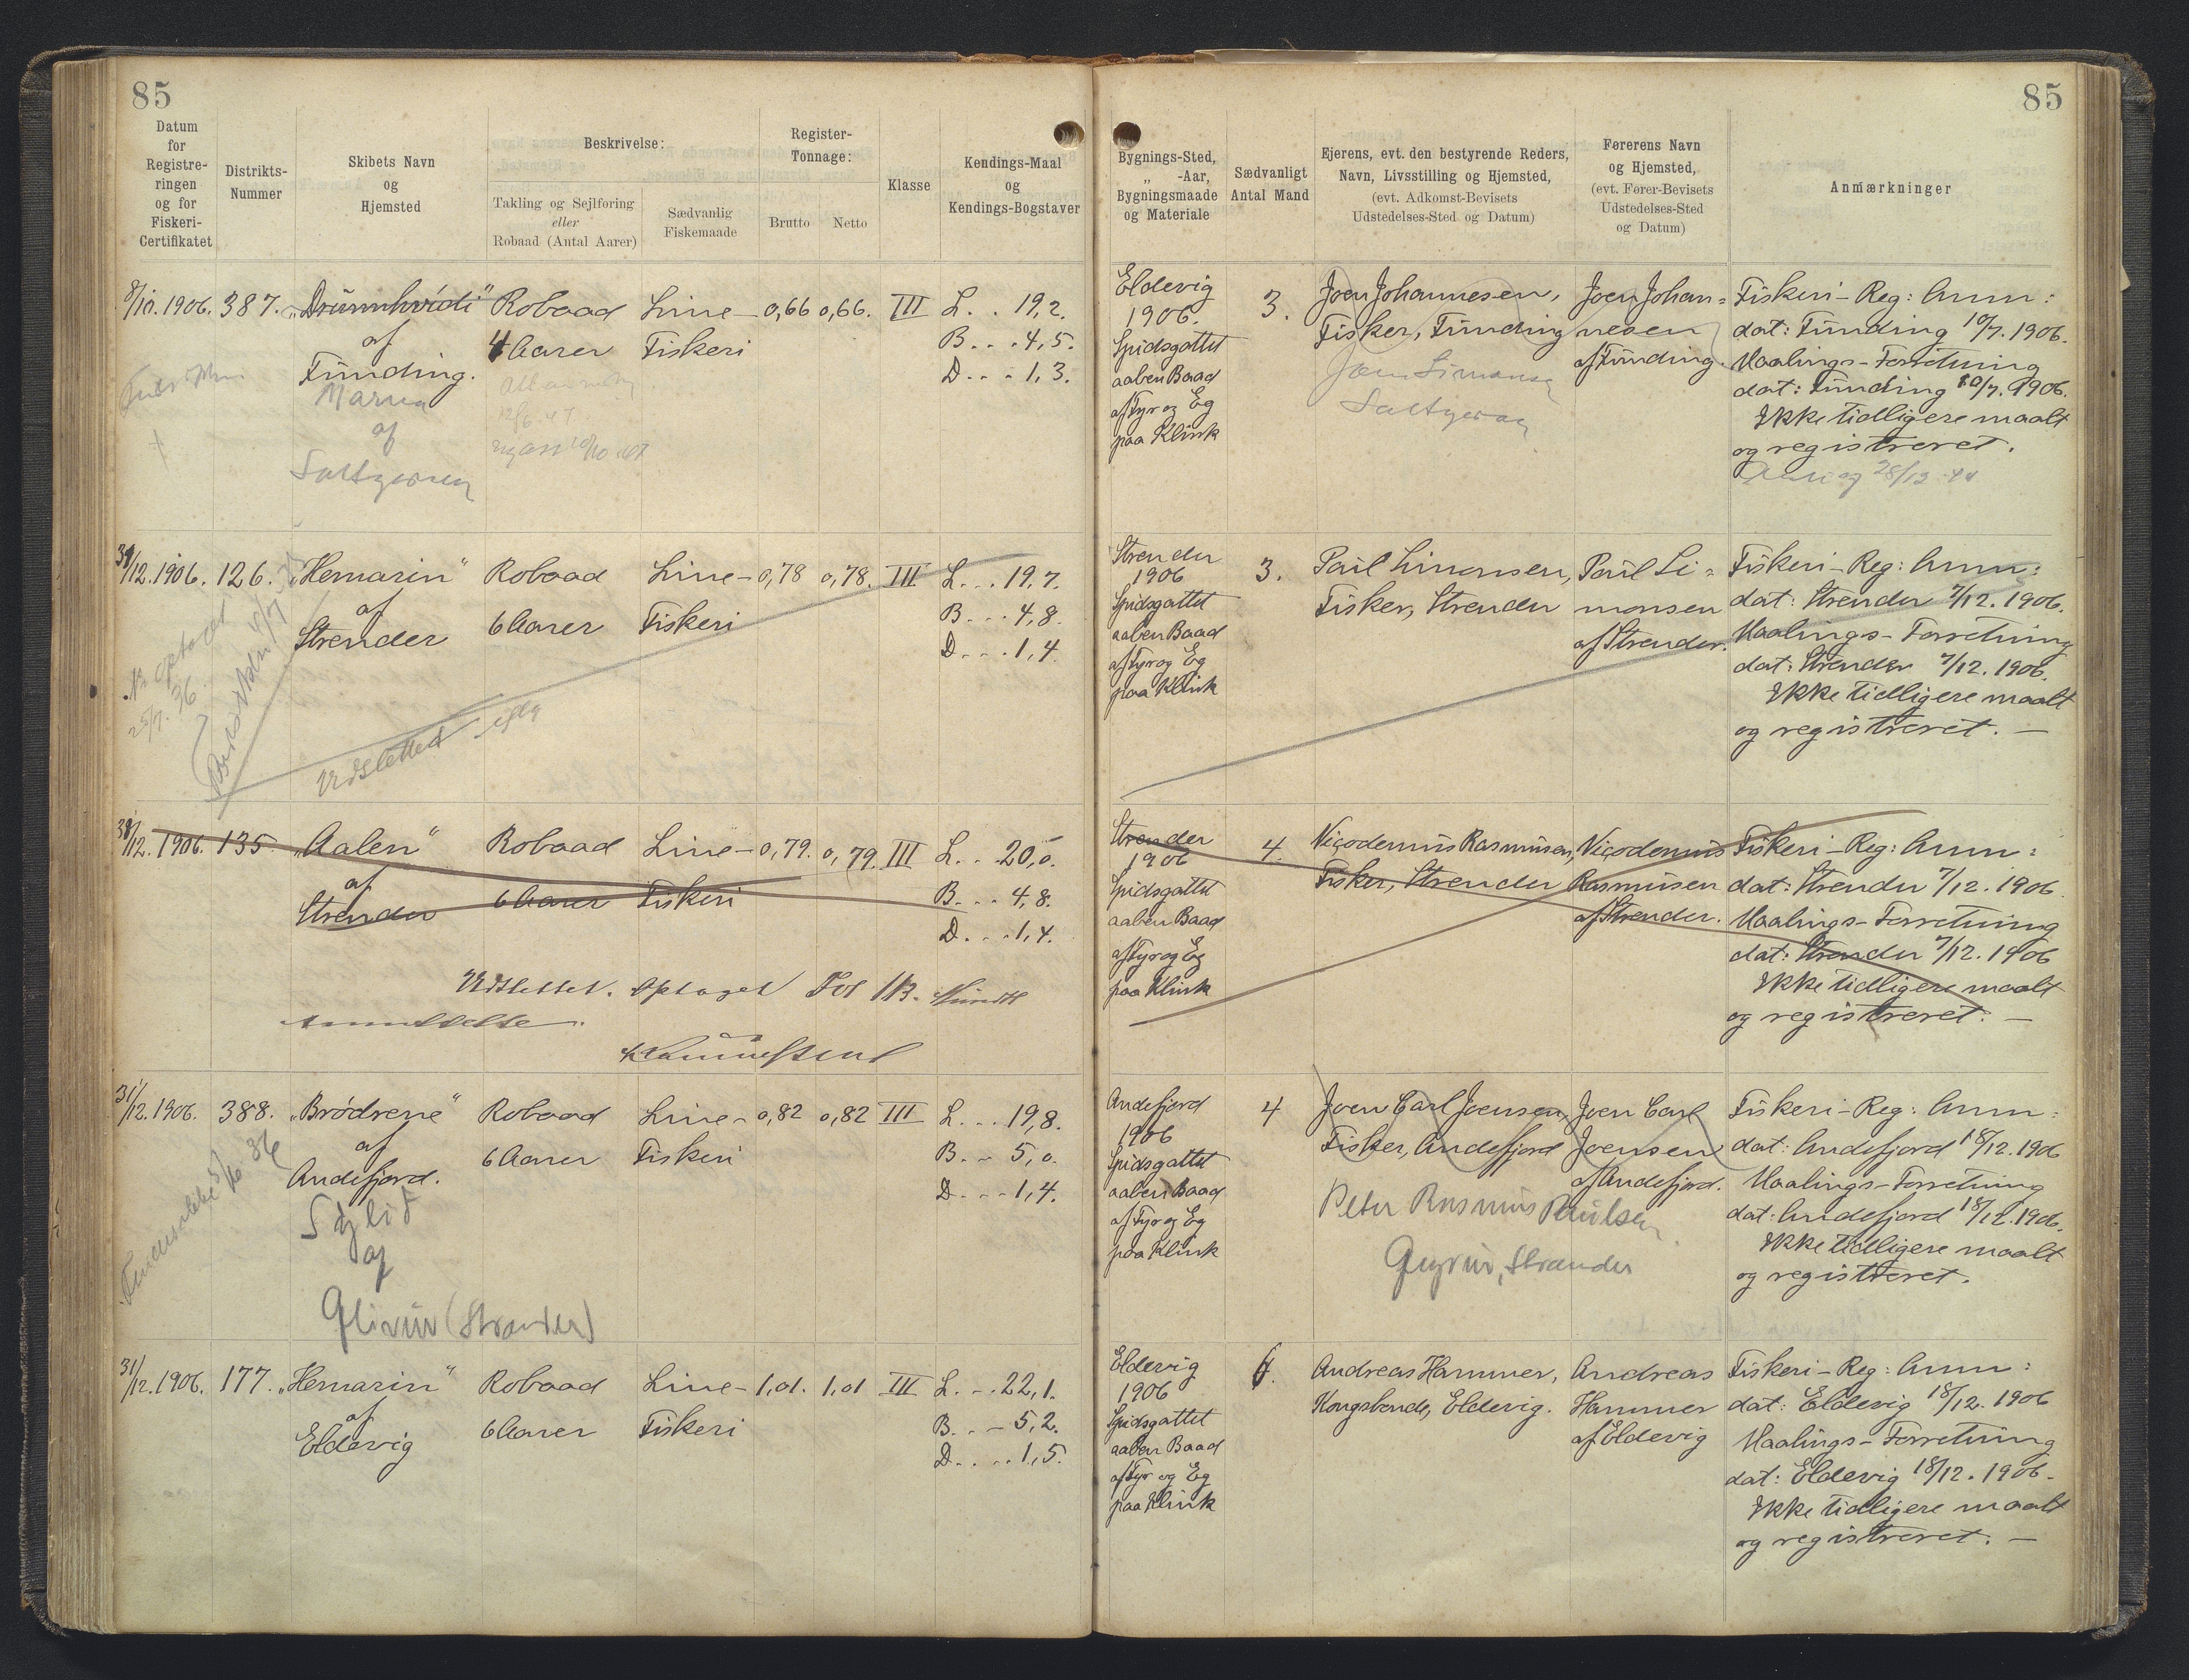 85
85
Datum
for
Registre-
ringen
og for
Fiskeri-
Certifikatet
Distrikts-
Nummer
Skibets Navn
og
Hjemsted
Beskrivelse:
Takling og Sejlføring
eller
Robaad (Antal Aarer)
Sædvanlig
Fiskemaade
Register-
Tonnage:
Brutto
Netto
Klasse
Kendings-Maal
og
Kendings-Bogstaver
Bygnings-Sted,
„ -Aar,
Bygningsmaade
og Materiale
Sædvanligt
Antal Mand
Ejerens, evt. den bestyrende Reders,
Navn, Livsstilling og Hjemsted,
(evt. Adkomst-Bevisets
Udstedelses-Sted og Datum)
Førerens Navn
og Hjemsted,
(evt. Fører-Bevisets
Udstedelses-Sted
og Datum)
Anmærkninger
1906. 387.
af
Funding.
af
Robaad
4 Aarer
Line-
Fiskeri
0,66 0,66. III
L. . 19,2.
B. . . 4,5.
D. . . 1,3.
Eldevig
1906.
Spidsgattet
aaben Baad
af Fyr og Eg
paa Klink
3.
Joen Johannesen,
Fisker, Funding
Joen Johan=
nesen
af Funding.
Fiskeri-Reg: Anm:
dat: Funding 10/7. 1906.
Maalings-Forretning
dat: Funding 10/7. 1906.
Ikke tidligere maalt
og registreret.
31/12.1906. 126.
„Hemarin"
af
Strender
Robaad
6 Aarer
Line-
Fiskeri
0,78 0,78. III
L. . . 19,7.
B. . . 4,8.
D. . . 1,4.
Udslettet
Strender
1906
Spidsgattet
aaben Baad
af Fyr og Eg
paa Klink
3.
Paul Simonsen,
Fisker, Strender
Paul Si=
monsen
af Strender.
Fiskeri-Reg: Anm:
dat: Strender 7/12. 1906.
Maalings-Forretning
dat: Strender 7/12. 1906.
Ikke tidligere maalt
og registreret. —
31/12. 1906. 135
„Aalen"
af
Strender
Robaad
6 Aarer
Line-
Fiskeri
0,79. 0,79. III
L. . 20,0.
B. . . 4,8.
D. . . 1,4.
Udslettet. Optaget Fol 113.
Strender
1906
Spidsgattet
aaben Baad
af Fyr og Eg
paa Klink
4.
Nicodemus Rasmusen,
Fisker, Strender
Nicodemus
Rasmusen
af Strender.
Fiskeri-Reg: Anm:
dat: Strender 7/12. 1906
Maalings-Forretning
dat: Strender 7/12. 1906
Ikke tidligere maalt
og registreret. —
31/12. 1906. 388.
„Brödrene"
af
Andefjord.
af
Robaad
6 Aarer
Line-
Fiskeri
0,82 0,82 III
L. . . 19,8.
B. . 5,0.
D. . . 1,4.
Andefjord
1906
Spidsgattet
aaben Baad
af Fyr og Eg
paa Klink
4
Joen Carl Joensen,
Fisker, Andefjord
Peter Rasmus Paulsen
Joen Carl
Joensen
af Andefjord.
Fiskeri-Reg: Anm:
dat: Andefjord 18/12. 1906
Maalings-Forretning
dat: Andefjord 18/12. 1906.
Ikke tidligere maalt
og registreret.
31/12. 1906. 177.
„Hemarin"
af
Eldevig
Robaad
6 Aarer
Line-
Fiskeri
1,01. 1,01 III
L. . . 22,1.
B. . - 5,2.
D. . . . 1,5.
Eldevig
1906
Spidsgattet
aaben Baad
af Fyr og Eg
paa Klink
Andreas Hammer,
Kongsbonde, Eldevig.
Andreas
Hammer
af Eldevig
Fiskeri-Reg: Anm:
dat: Eldevig 18/12. 1906
Maalings-Forretning
dat: Eldevig 18/12. 1906.
Ikke tidligere maalt
og registreret. —